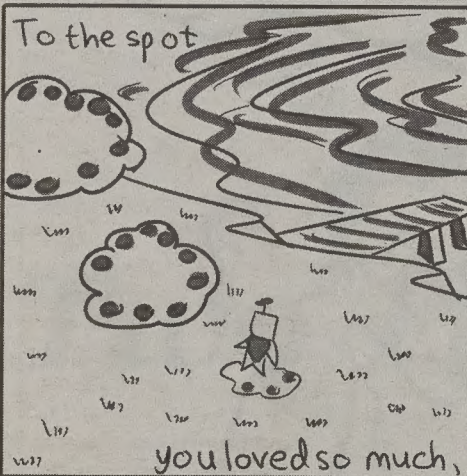 To the spot
you loved so much.